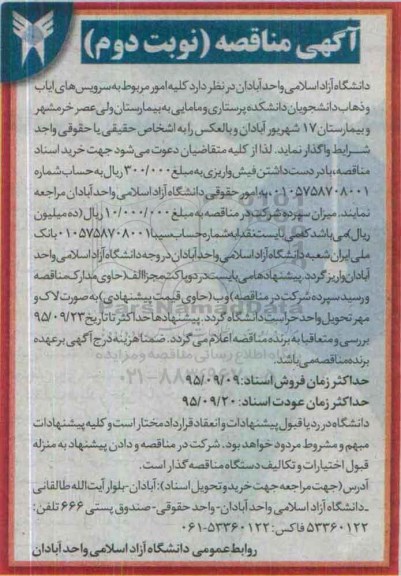 آگهی مناقصه (نوبت دوم)
دانشگاه آزاد اسلامی واحد آبادان در نظر دارد کلیه امور مربوط به سرویس های ایاب
و ذهاب دانشجویان دانشکده پرستاری و مامایی به بیمارستان ولی عصر خرمشهر
و بیمارستان ۱۷ شهریور آبادان و بالعکس را به اشخاص حقیقی یا حقوقی واجد
شرایط واگذار نماید. لذا از کلیه متقاضیان دعوت می شود جهت خرید اسناد
مناقصه با در دست داشتن فیش واریزی به مبلغ ۳۰۰/۰۰۰ ریال به حساب شماره
۰۱۰۵۷۵۸۷۰۸۰۰۱ به امور حقوقی دانشگاه آزاد اسلامی واحد آبادان مراجعه
نمایند. میزان سپرده شرکت در مناقصه به مبلغ ۱۰/۰۰۰/۰۰۰ ریال (ده میلیون
ریال) می باشد که می بایست نقدا به شماره حساب سیبا ۰۱۰۵۷۵۸۷۰۸۰۰۱ بانک
ملی ایران شعبه دانشگاه آزاد اسلامی واحد آبادان در وجه دانشگاه آزاد اسلامی واحد
آبادان واریز گردد. پیشنهادها می بایست در دو پاکت مجزا الف (حاوی مدارک مناقصه
و رسید سپرده شرکت در مناقصه) و ب (حاوی قیمت پیشنهادی) به صورت لاک و
مهر تحویل واحد حراست دانشگاه گردد. پیشنهادها حداکثر تا تاریخ ۹۵/۰۹/۲۳
بررسی و متعاقبا به برنده مناقصه اعلام می گردد. ضمنا هزینه درج آگهی بر عهده
برنده مناقصه می باشد.
حداکثر زمان فروش اسناد: ۹۵/۰۹/۰۹
حداکثر زمان عودت اسناد: ۹۵/۰۹/۲۰
دانشگاه در رد یا قبول پیشنهادات و انعقاد قرارداد مختار است و کلیه پیشنهادات
مبهم و مشروط مردود خواهد بود. شرکت در مناقصه و دادن پیشنهاد به منزله
قبول اختیارات و تکالیف دستگاه مناقصه گذار است.
آدرس (جهت مراجعه جهت خرید و تحویل اسناد): آبادان-بلوار آیت الله طالقانی
-دانشگاه آزاد اسلامی واحد آبادان-واحد حقوقی-صندوق پستی ۶۶۶ تلفن:
۵۳۳۶۰۱۲۲ فاکس: ۵۳۳۶۰۱۲۲-۰۶۱
روابط عمومی دانشگاه آزاد اسلامی واحد آبادان